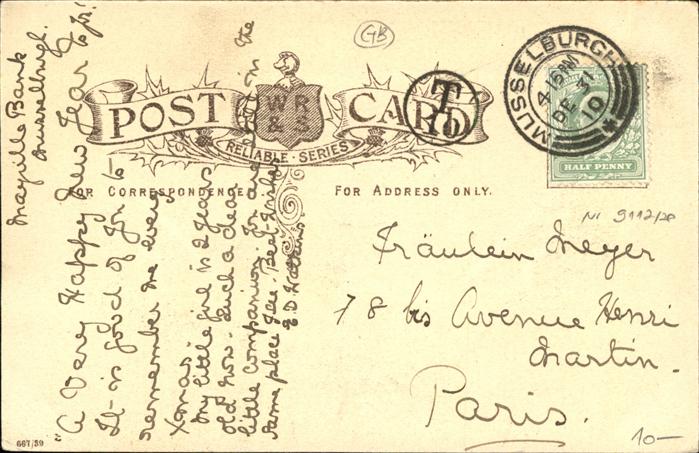 Mayville Bank
Musselburgh.
A Very Happy New Year to Yr!
It is good of You to
remember me every
Xmas
My little girl is 2 years
old now. Such a dear
little companion. I'm in the
same place here. Best wishes
E.D. Watkins
GB
POST CARD
WR
& S
RELIABLE SERIES
T
MUSSELBURGH
4.15 PM
DE 31
10
HALF PENNY
FOR CORRESPONDENCE
FOR ADDRESS ONLY.
NI 9112/20
Fräulein Meyer
78 bis Avenue Henri
Martin.
Paris.
667/39
10-